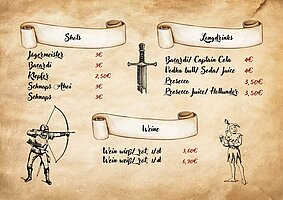 Shots
Jägermeister 3€
Bacardi 3€
Klopfer 2,50€
Schnaps Ahoi 3€
Schnaps 3€
Longdrinks
Bacardi/ Captain Cola 4€
Vodka bull/ Soda/ Juice 4€
Prosecco 3,50€
Prosecco Juice/ Hollunder 3,50€
Weine
Wein weiß/ rot, 1/4 3,60€
Wein weiß/ rot, 1/2 6,90€